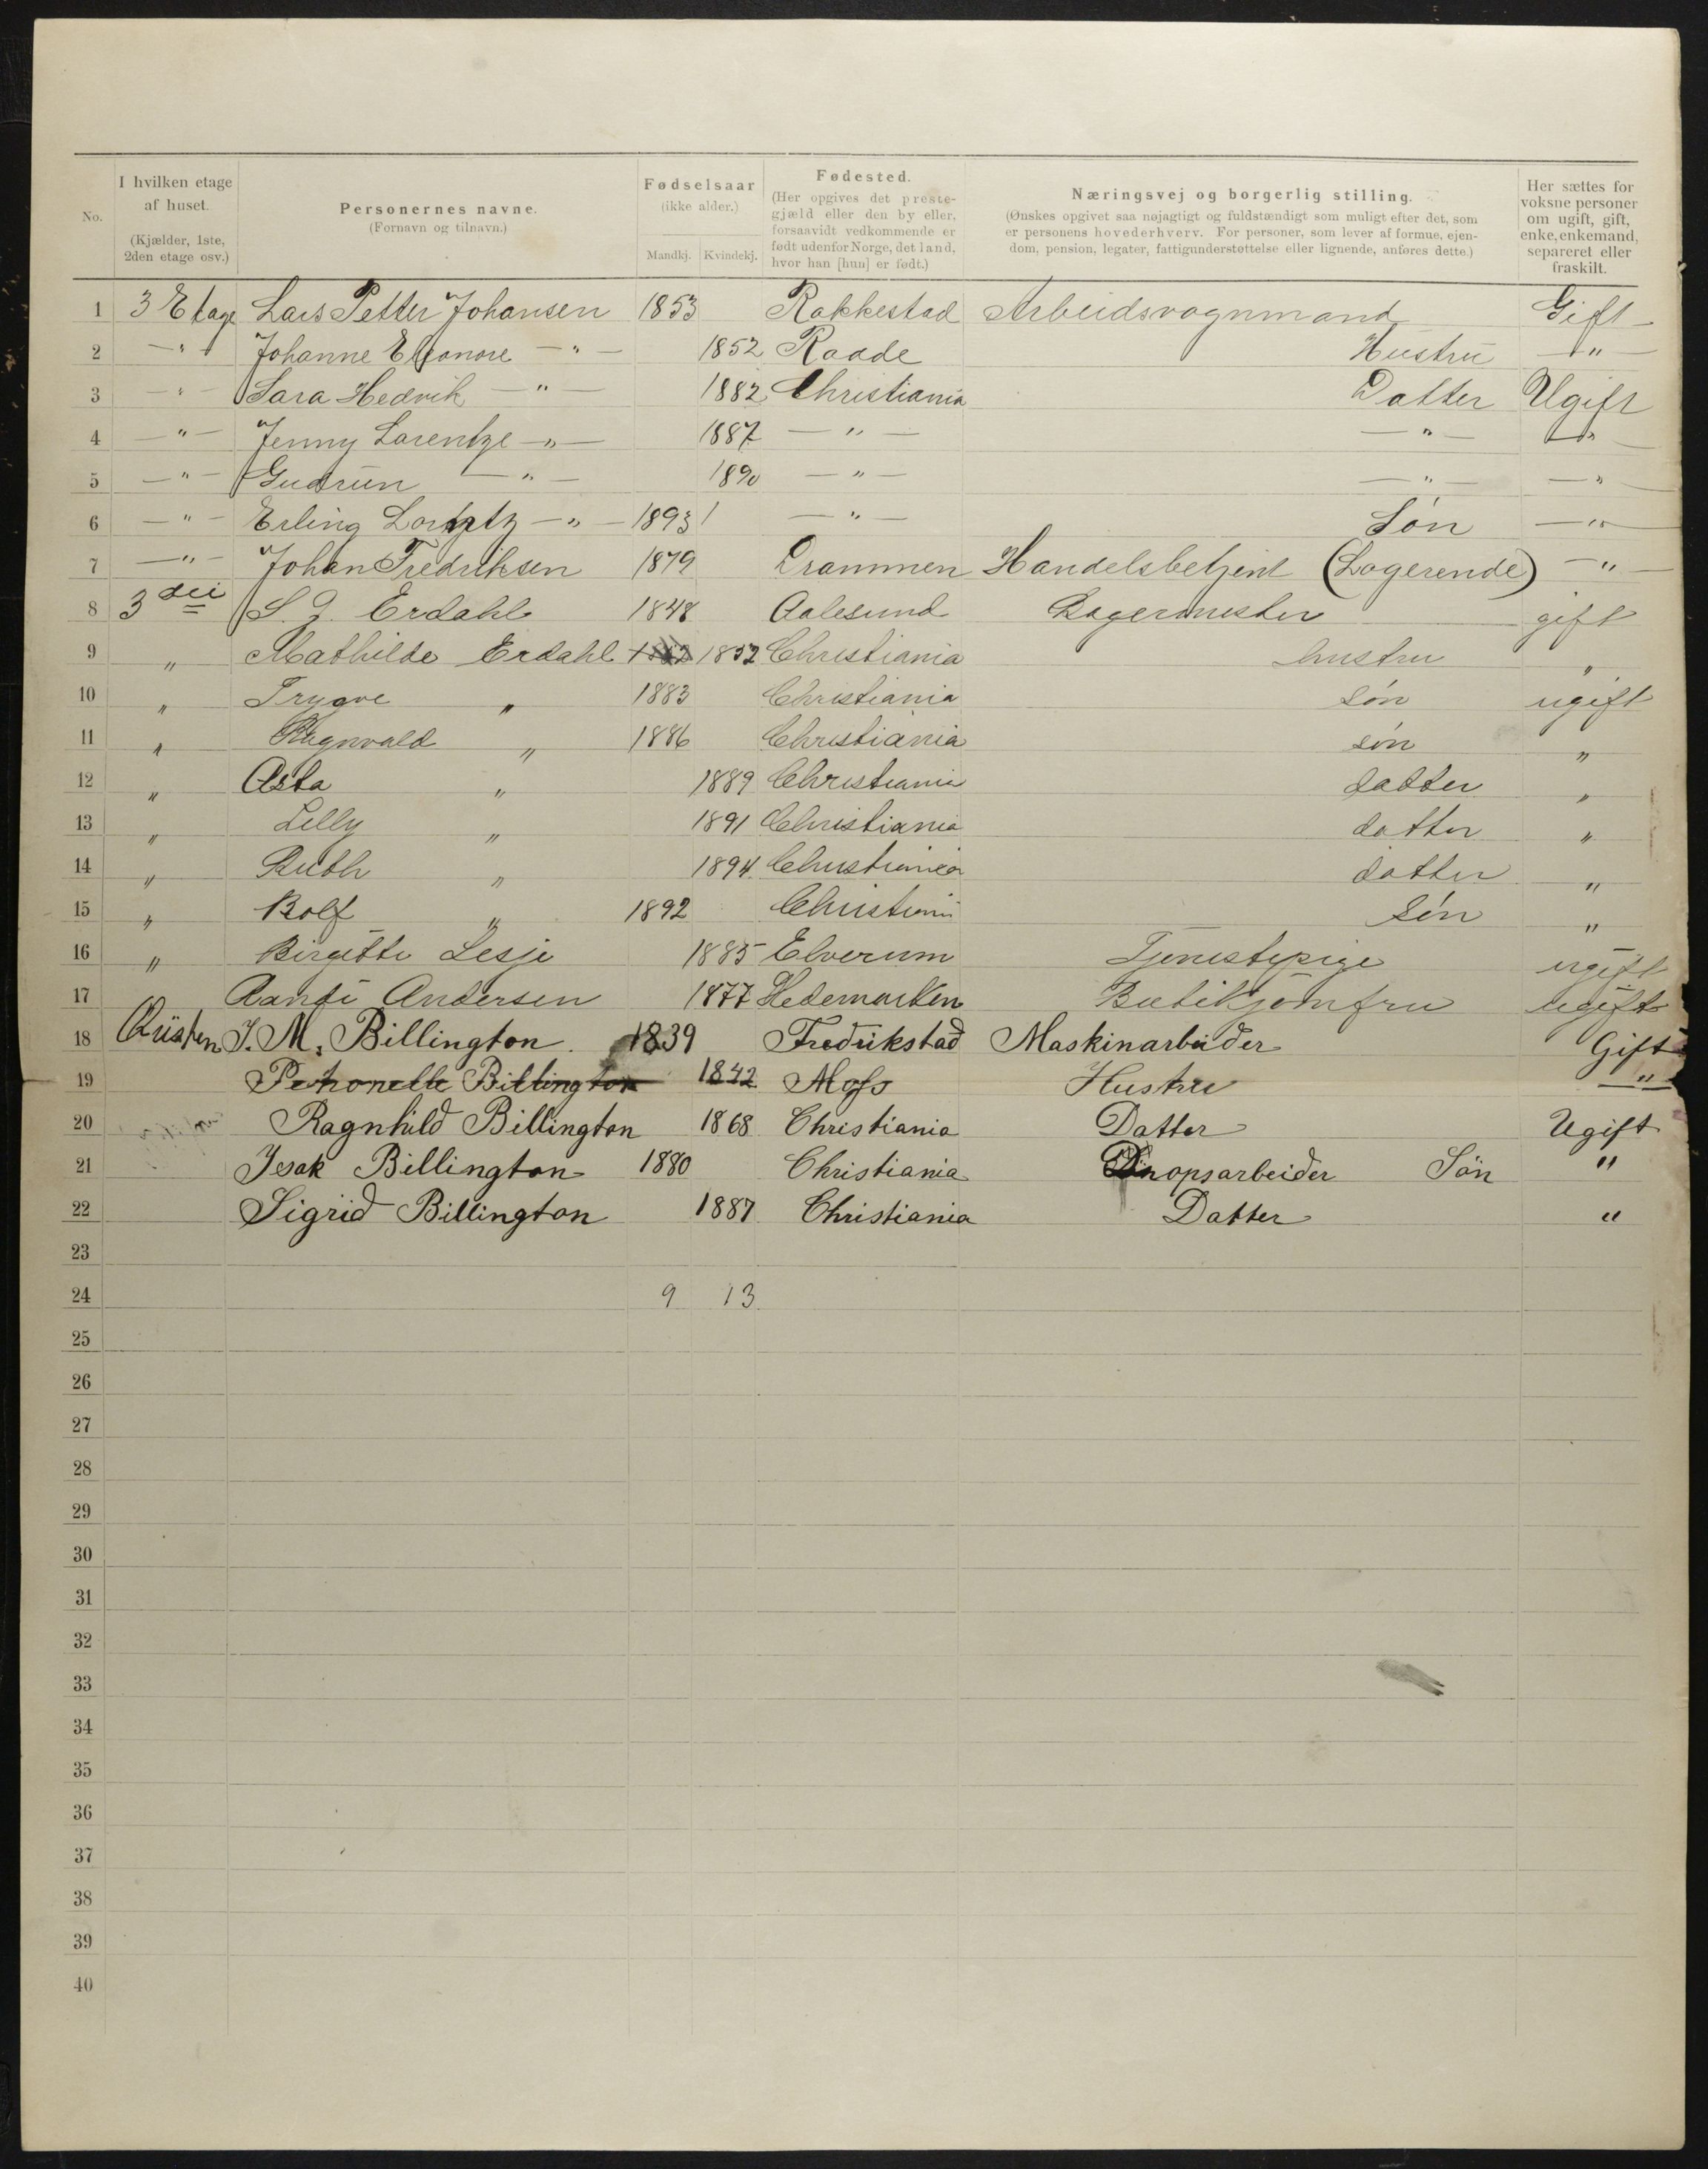 No.
I hvilken etage af huset. (Kjælder, 1ste, 2den etage osv.)
Personernes navne. (Fornavn og tilnavn.)
Fødselsaar (ikke alder.) Mandkj. Kvindekj.
Fødested. (Her opgives det prestegjæld eller den by eller, forsaavidt vedkommende er født udenfor Norge, det land, hvor han [hun] er født.)
Næringsvej og borgerlig stilling. (Ønskes opgivet saa nøjagtigt og fuldstændigt som muligt efter det, som er personens hovederhverv. For personer, som lever af formue, ejendom, pension, legater, fattigunderstøttelse eller lignende, anføres dette.)
Her sættes for voksne personer om ugift, gift, enke, enkemand, separeret eller fraskilt.
1 3 Etage Lars Petter Johansen 1853 Rakkestad Arbeidsvognmand Gift
2 — " — Johanne Eleonore — " — 1852 Raade Hustru — " —
3 — " — Sara Hedvik — " — 1882 Christiania Datter Ugift
4 — " — Jenny Larentze — " — 1887 — " — — " — — " —
5 — " — Gudrun — " — 1890 — " — — " — — " —
6 — " — Erling — " — 1893 — " — Søn — " —
7 — " — Johan Fredriksen 1879 Drammen Handelsbetjent (Logerende) — " —
8 3 Erdahl 1848 Aalesund Lagermester gift
9 " Mathilde Erdahl 1852 Christiania hustru "
10 " Trygve " 1883 Christiania søn ugift
11 " Ragnvald " 1886 Christiania søn "
12 " Asta " 1889 Christiania datter "
13 " Lilly " 1891 Christiania datter "
14 " Ruth " 1894 Christiania datter "
15 " Rolf " 1892 Christiania søn "
16 " Birgitte Lesje 1885 Elverum Tjenestepige ugift
17 Randi Andersen 1877 Hedemarken Butikjomfru ugift
18 J. M. Billington 1839 Fredrikstad Maskinarbeider Gift
19 Petronelle Billington 1842 Moss Hustru "
20 Ragnhild Billington 1868 Christiania Datter Ugift
21 Isak Billington 1880 Christiania Søn "
22 Sigrid Billington 1887 Christiania Datter "
23
24 9 13
25
26
27
28
29
30
31
32
33
34
35
36
37
38
39
40